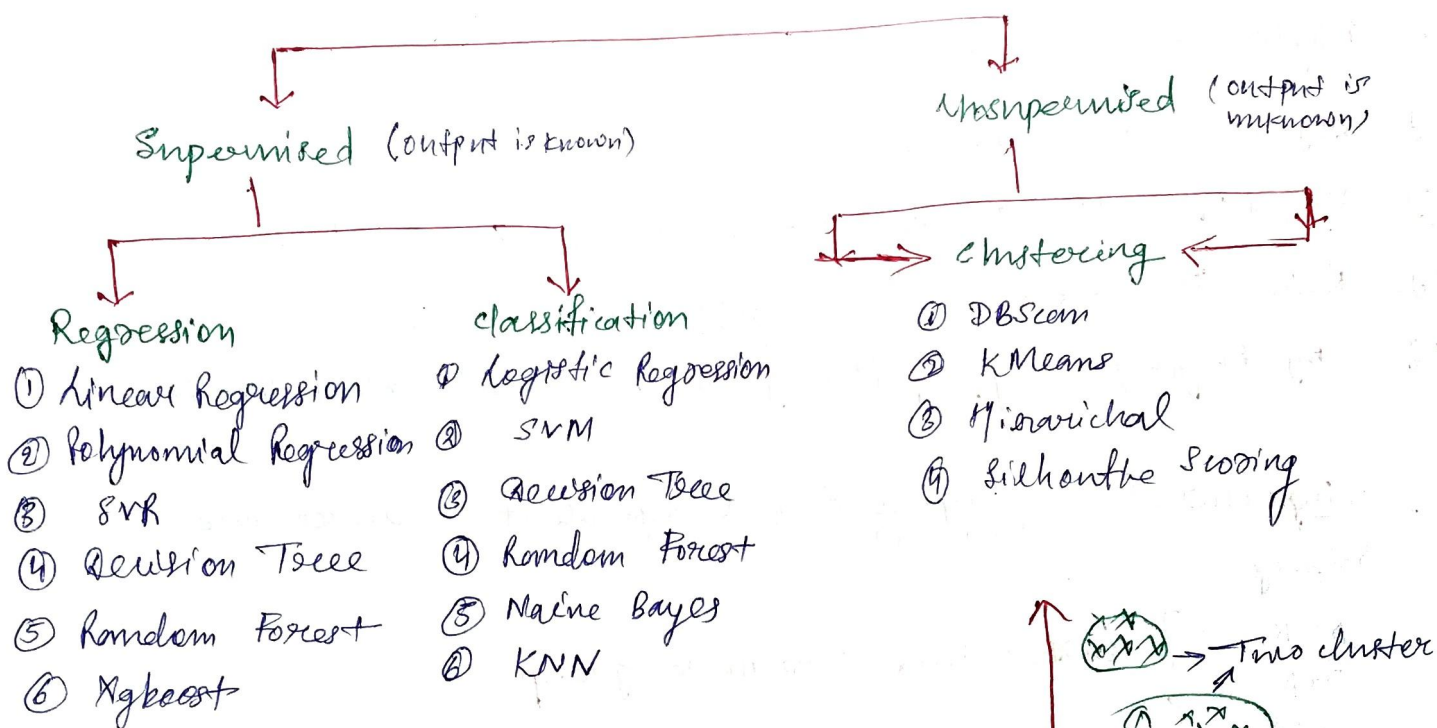 Supervised (output is known)
Unsupervised (output is
unknown)
Regression
① Linear Regression
② Polynomial Regression
③ SVR
④ Decision Tree
⑤ Random Forest
⑥ Xgboost
classification
① Logistic Regression
② SVM
③ Decision Tree
④ Random Forest
⑤ Naive Bayes
⑥ KNN
Clustering
① DBScan
② KMeans
③ Hierarichal
④ Silhoutte Scoring
Two cluster